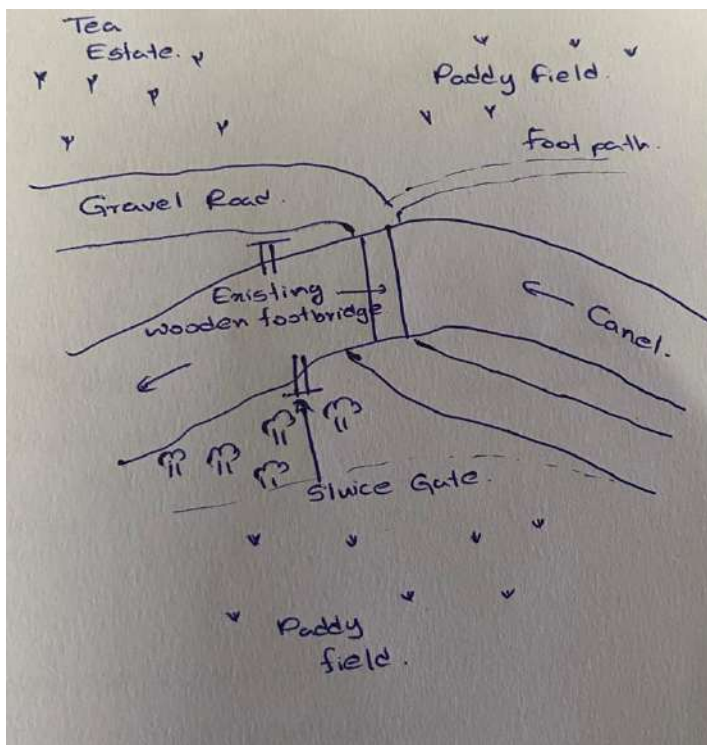 Tea
Estate.
Paddy field.
foot path.
Gravel Road.
Existing
wooden footbridge
Canel.
Sluice Gate.
Paddy
field.